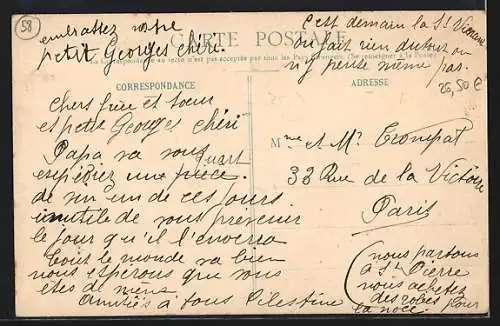 58
embrassez notre
petit Georges chéri.
c'est demain la St Vincent
on fait rien du tout on
n'y pense même pas.
CARTE POSTALE
La Correspondance au recto n'est pas acceptée par tous les Pays Étrangers (Se renseigner à la Poste)
26,50 €
CORRESPONDANCE
ADRESSE
Chers frère et sœur
et petit Georges chéri
Papa va vous
expédiez une quart pièce
de vin un de ces jours
inutile de vous prévenir
le jour qu'il l'enverra
tout le monde va bien
nous espérons que vous
êtes de même
Amitiés à tous Célestine
Mme et Mr Trompat
33 Rue de la Victoire
Paris
nous partons
à St Pierre
nous achetez
des robes pour
la noce.